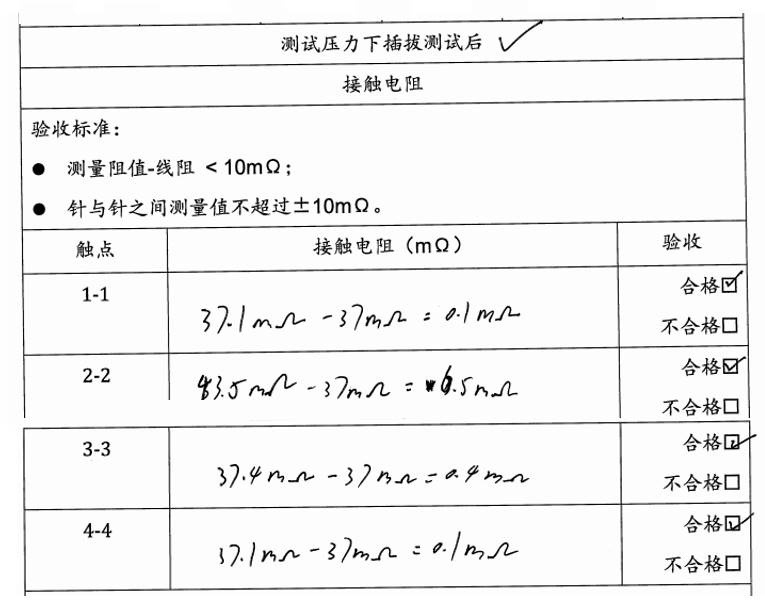 测试压力下插拔测试后 ✓
接触电阻
验收标准：
● 测量阻值-线阻 < 10mΩ；
● 针与针之间测量值不超过±10mΩ。
触点 接触电阻（mΩ） 验收
1-1 37.1mΩ - 37mΩ = 0.1mΩ 合格☑
不合格□
2-2 43.5mΩ - 37mΩ = 6.5mΩ 合格☑
不合格□
3-3 37.4mΩ - 37mΩ = 0.4mΩ 合格☑
不合格□
4-4 37.1mΩ - 37mΩ = 0.1mΩ 合格☑
不合格□